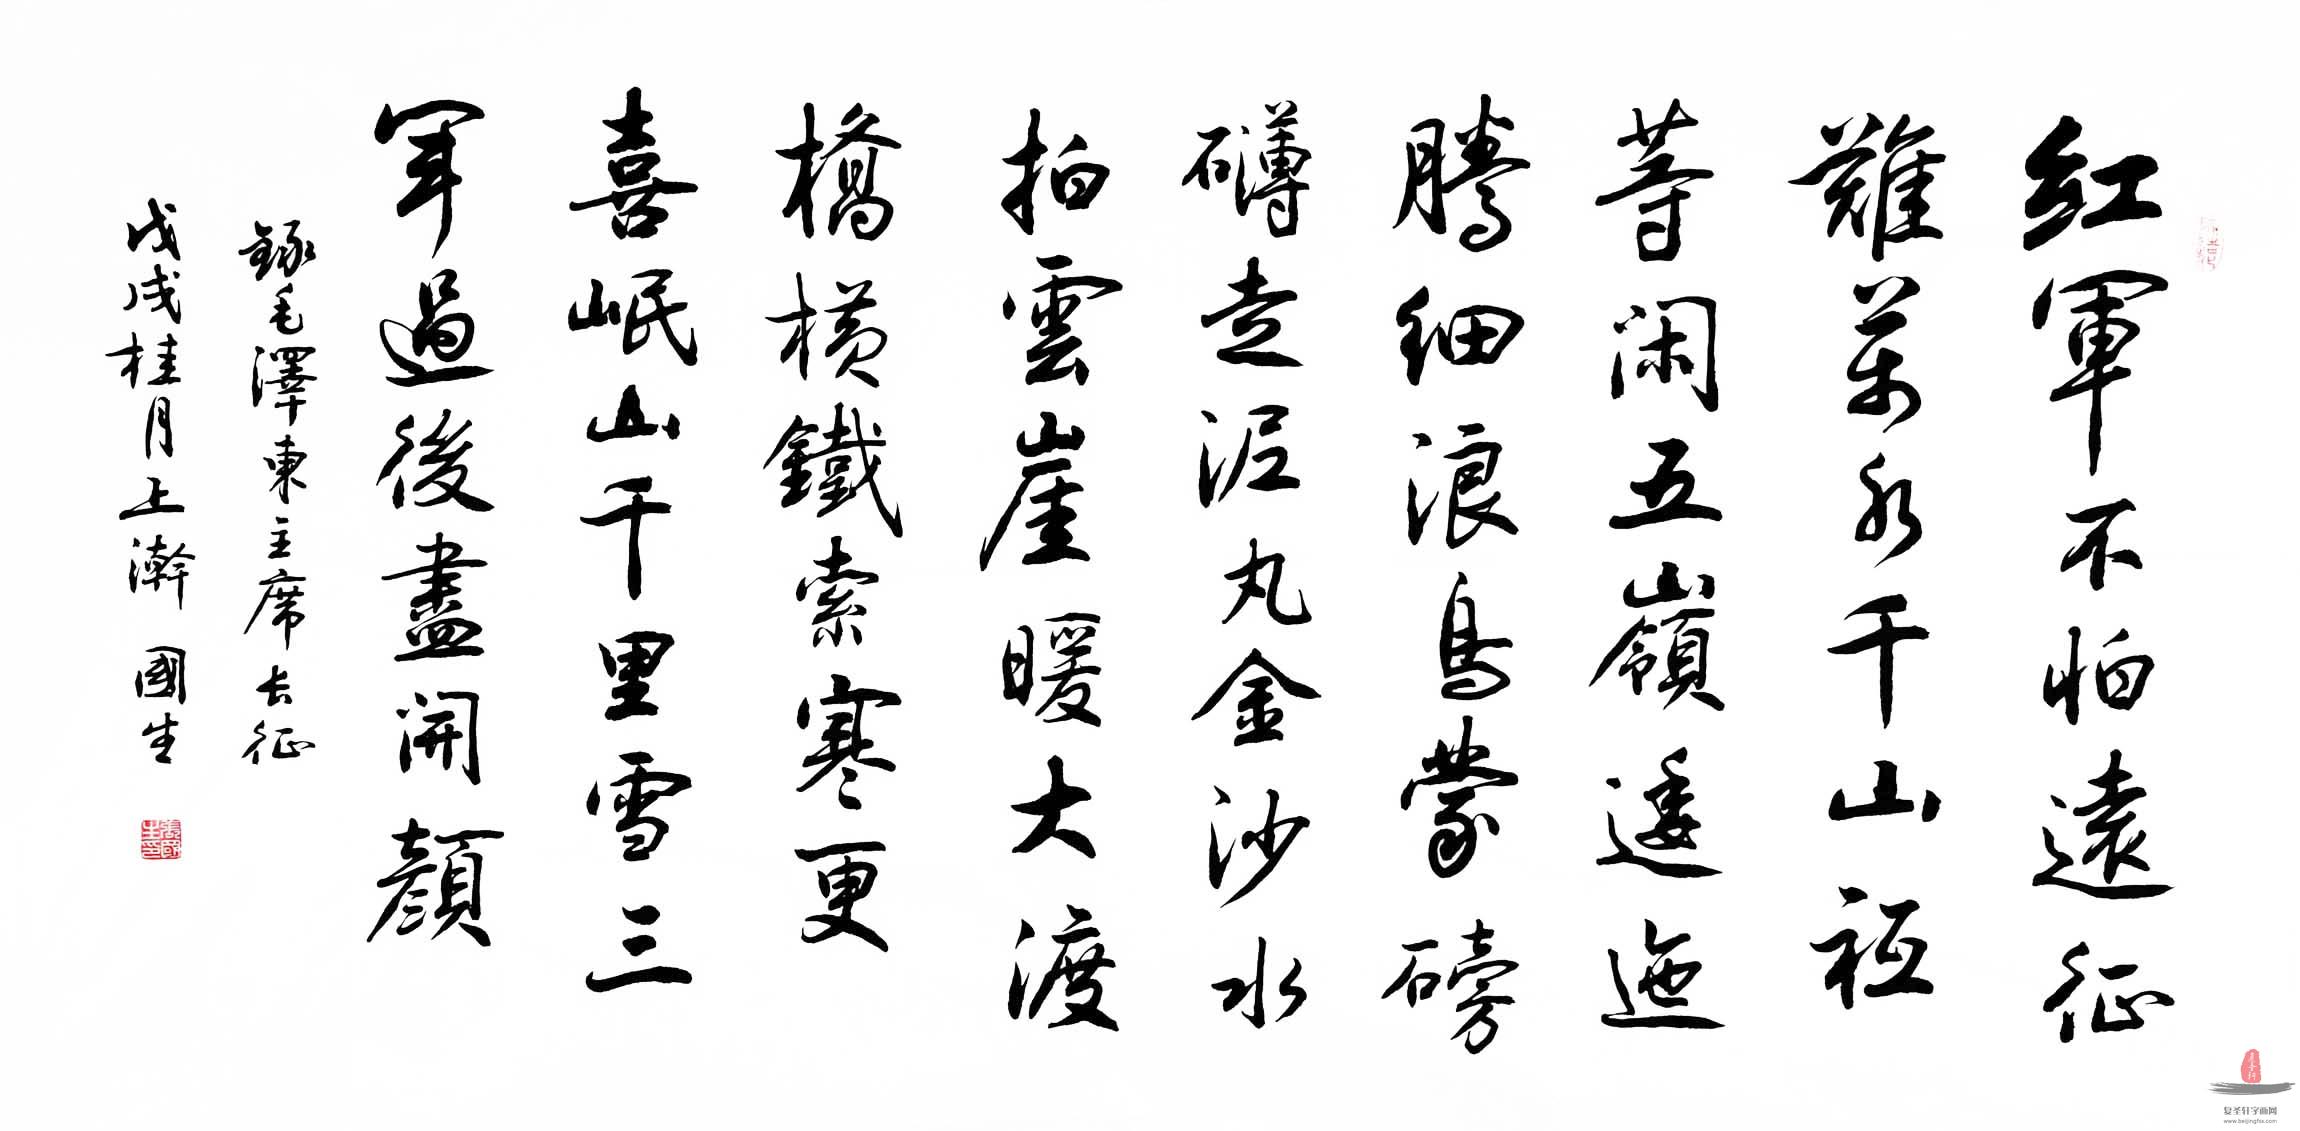 紅軍不怕遠征
難萬水千山祗
等闲五嶺逶迤
騰細浪烏蒙磅
礴走泥丸金沙水
拍雲崖暖大渡
橋橫鐵索寒更
喜岷山千里雪三
軍過後盡開顏
錄毛澤東主席長征
戊戌桂月上澣 國生
复圣轩字画网
www.beijingfsx.com